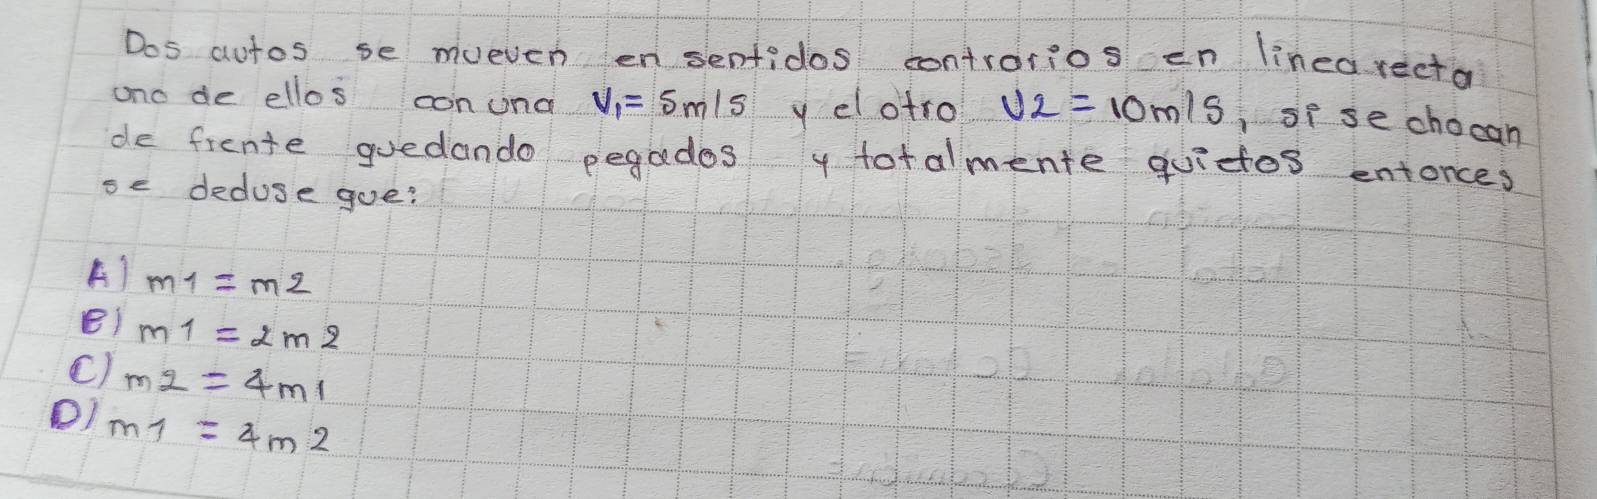 Dos autos se mueven en sentidos contrarios en linea recta
uno de ellos con una V1 = 5m/s y el otro V2 = 10m/s, si se chocan
de frente quedando pegados y totalmente quietos entonces
se deduse que:
A) m1 = m2
B) m1 = 2m2
C) m2 = 4m1
D) m1 = 4m2